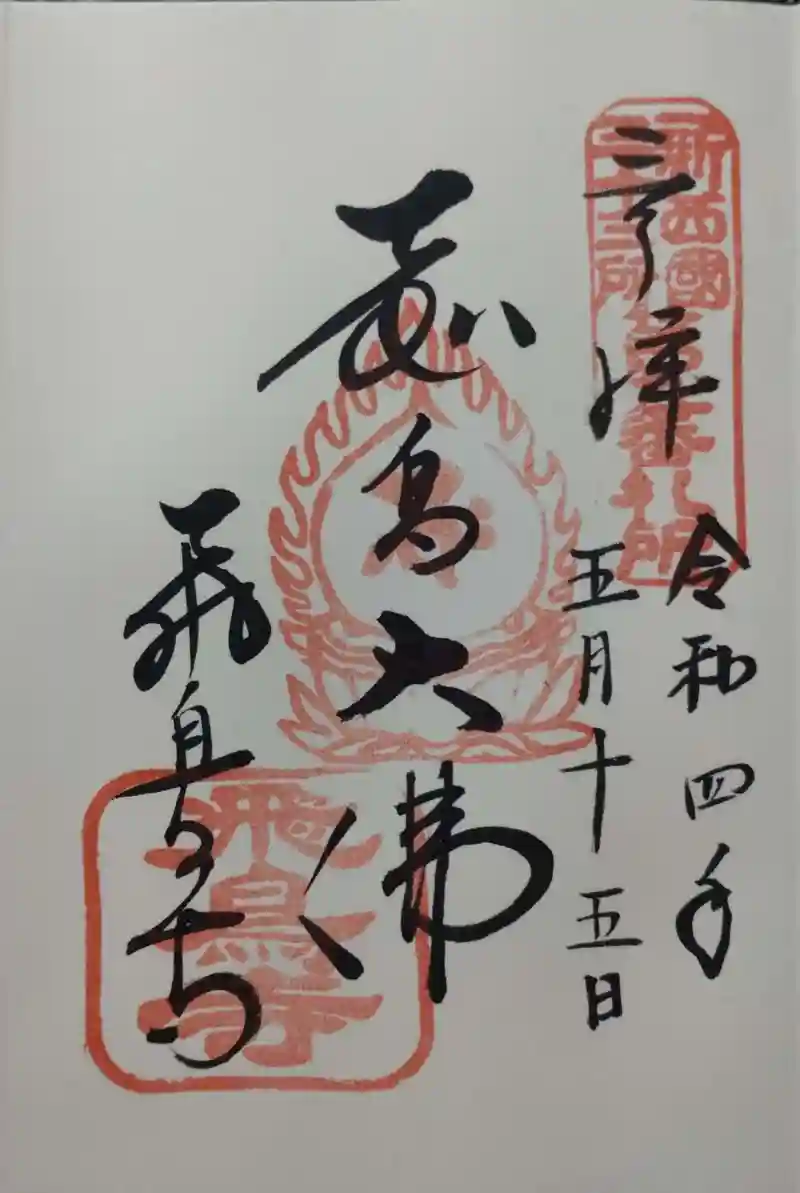 奉拝
新西國
三十三所
番札所
令和四年
五月十五日
飛鳥大佛
飛鳥寺
飛鳥寺